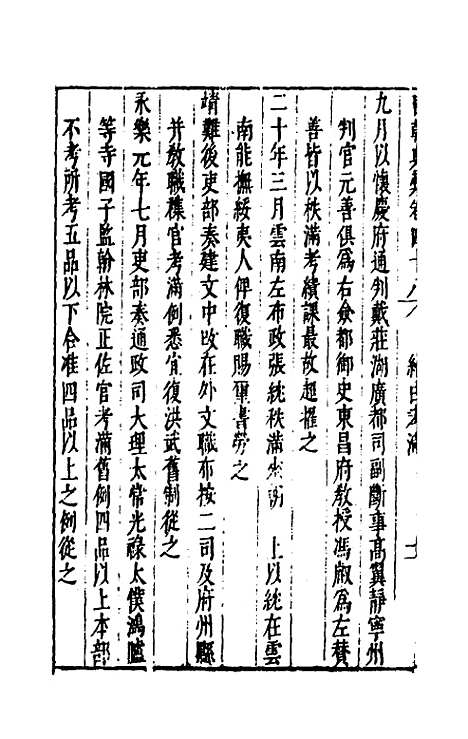 國朝典彙卷四十八 經由考滿
九月以懷慶府通判戴莊湖廣都司副斷事高翼靜寧州
判官元善俱為右僉都御史東昌府教授馮厫為左贊
善皆以秩滿考績課最故超擢之
二十年三月雲南左布政張紞秩滿來朝 上以紞在雲
南能撫綏夷人俾復職賜璽書勞之
靖難後吏部奏建文中改在外文職布按二司及府州縣
并教職襍官考滿例悉宜復洪武舊制從之
永樂元年七月吏部奏通政司大理太常光祿太僕鴻臚
等寺國子監翰林院正佐官考滿舊例四品以上本部
不考所考五品以下合准四品以上之例從之